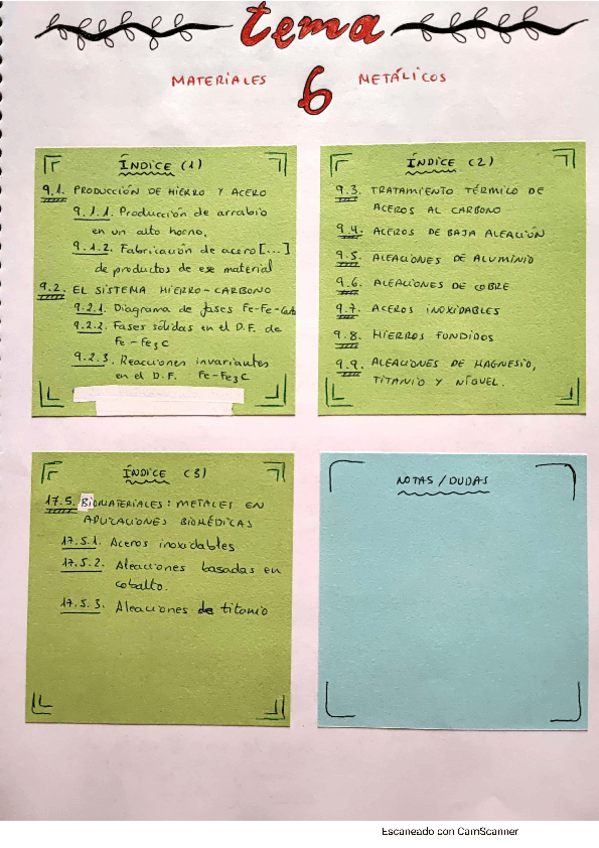 tema
MATERIALES 6 METÁLICOS
ÍNDICE (1)
9.1. PRODUCCIÓN DE HIERRO Y ACERO
9.1.1. Producción de arrabio
en un alto horno.
9.1.2. Fabricación de acero [...]
de productos de ese material
9.2. EL SISTEMA HIERRO-CARBONO
9.2.1. Diagrama de fases Fe-Fe-
9.2.2. Fases sólidas en el D.F. de
Fe-Fe3C
9.2.3. Reacciones invariantes
en el D.F. Fe-Fe3C
ÍNDICE (2)
9.3. TRATAMIENTO TÉRMICO DE
ACEROS AL CARBONO
9.4. ACEROS DE BAJA ALEACIÓN
9.5. ALEACIONES DE ALUMINIO
9.6. ALEACIONES DE COBRE
9.7. ACEROS INOXIDABLES
9.8. HIERROS FUNDIDOS
9.9. ALEACIONES DE MAGNESIO,
TITANIO Y NÍQUEL.
ÍNDICE (3)
17.5. BIOMATERIALES: METALES EN
APLICACIONES BIOMÉDICAS
17.5.1. Aceros inoxidables
17.5.2. Aleaciones basadas en
cobalto.
17.5.3. Aleaciones de titanio
NOTAS/DUDAS
Escaneado con CamScanner